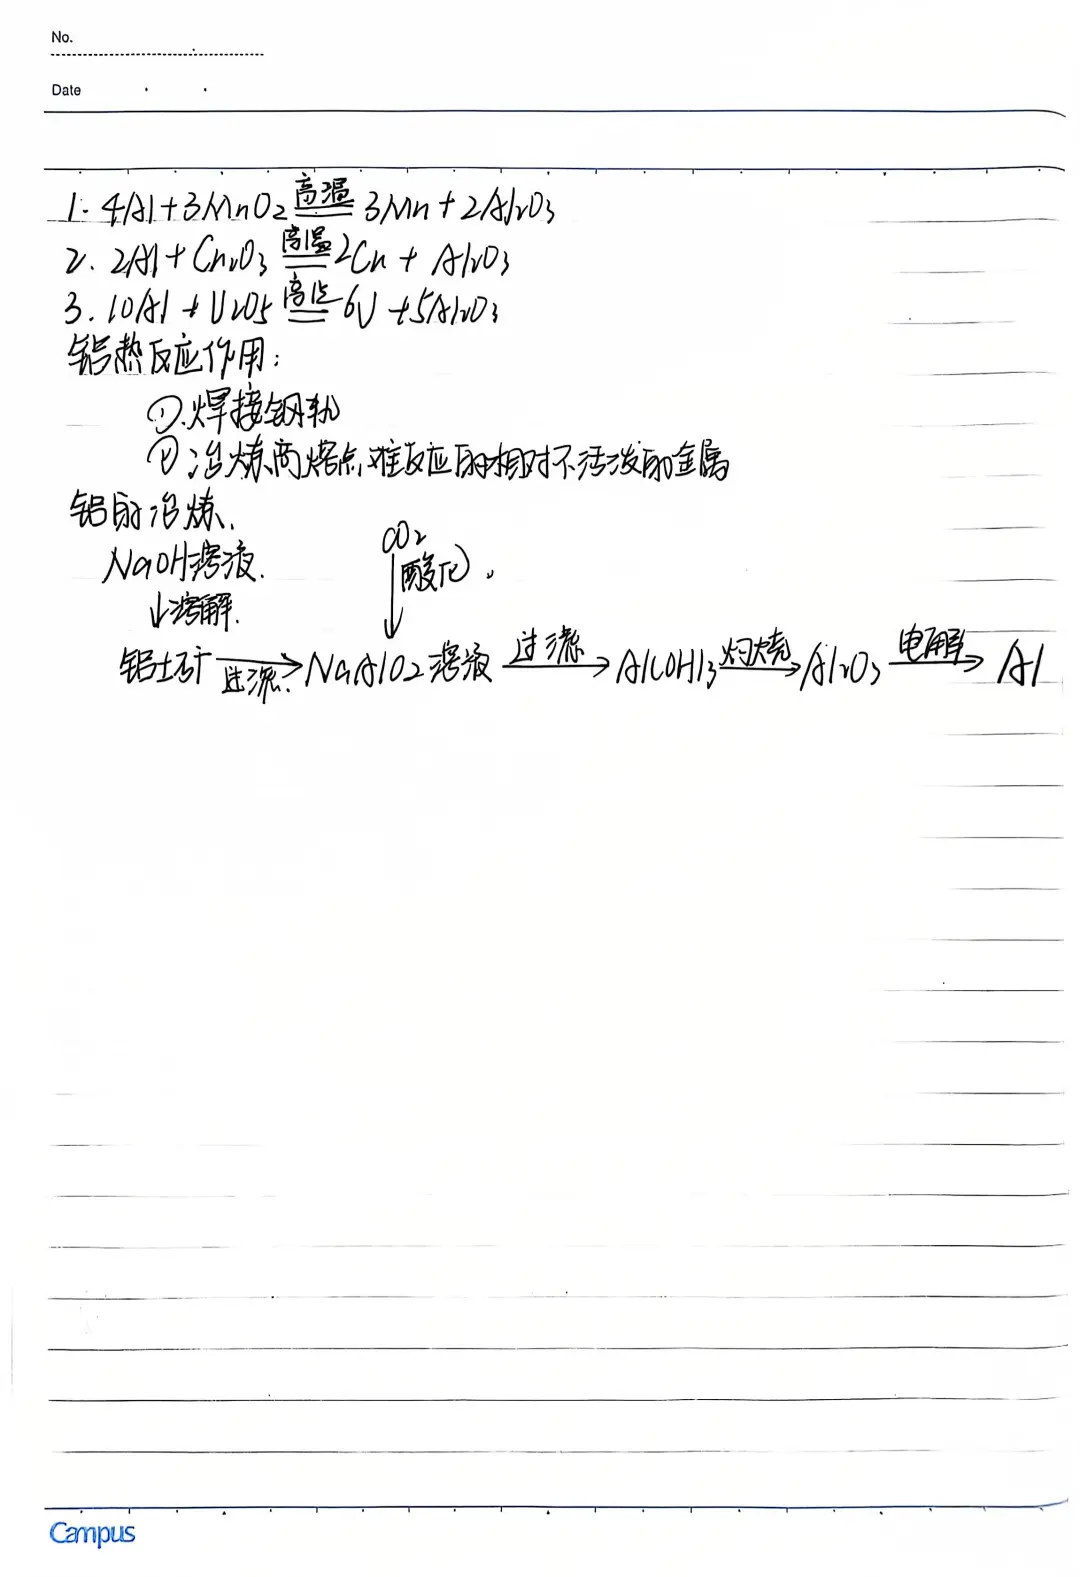 No.
Date
1. 4Al+3MnO2 高温 3Mn+2Al2O3
2. 2Al+Cn2O3 高温 2Cn+Al2O3
3. 10Al+U2O5 高温 6U+5Al2O3
铝热反应作用:
①.焊接钢轨
②冶炼高熔点,难反应的相对不活泼的金属
铝的冶炼.
NaOH溶液. CO2
↓溶解. ↓酸化.
铝土矿 →过滤. NaAlO2溶液 过滤→ Al(OH)3 灼烧→ Al2O3 电解→ Al
Campus